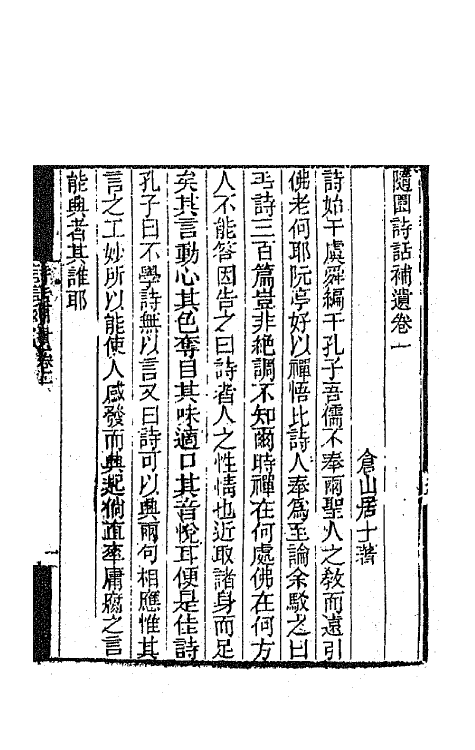 隨園詩話補遺卷一
倉山居士著
詩始于虞舜編于孔子吾儒不奉兩聖人之敎而遠引
佛老何耶阮亭好以禪悟比詩人奉爲至論余駁之曰
毛詩三百篇豈非絕調不知爾時禪在何處佛在何方
人不能答因告之曰詩者人之性情也近取諸身而足
矣其言動心其色奪目其味適口其音悅耳便是佳詩
孔子曰不學詩無以言又曰詩可以興兩句相應惟其
言之工妙所以能使人感發而興起倘直率庸腐之言
能興者其誰耶